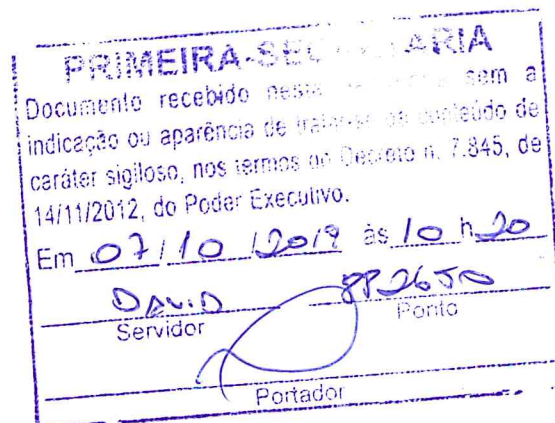 PRIMEIRA-SECRETARIA
Documento recebido nesta sem a
indicação ou aparência de tratar-se de conteúdo de
caráter sigiloso, nos termos do Decreto n. 7.845, de
14/11/2012, do Poder Executivo.
Em 07/10/2019 às 10 h 20
DAVID
Servidor Ponto
Portador